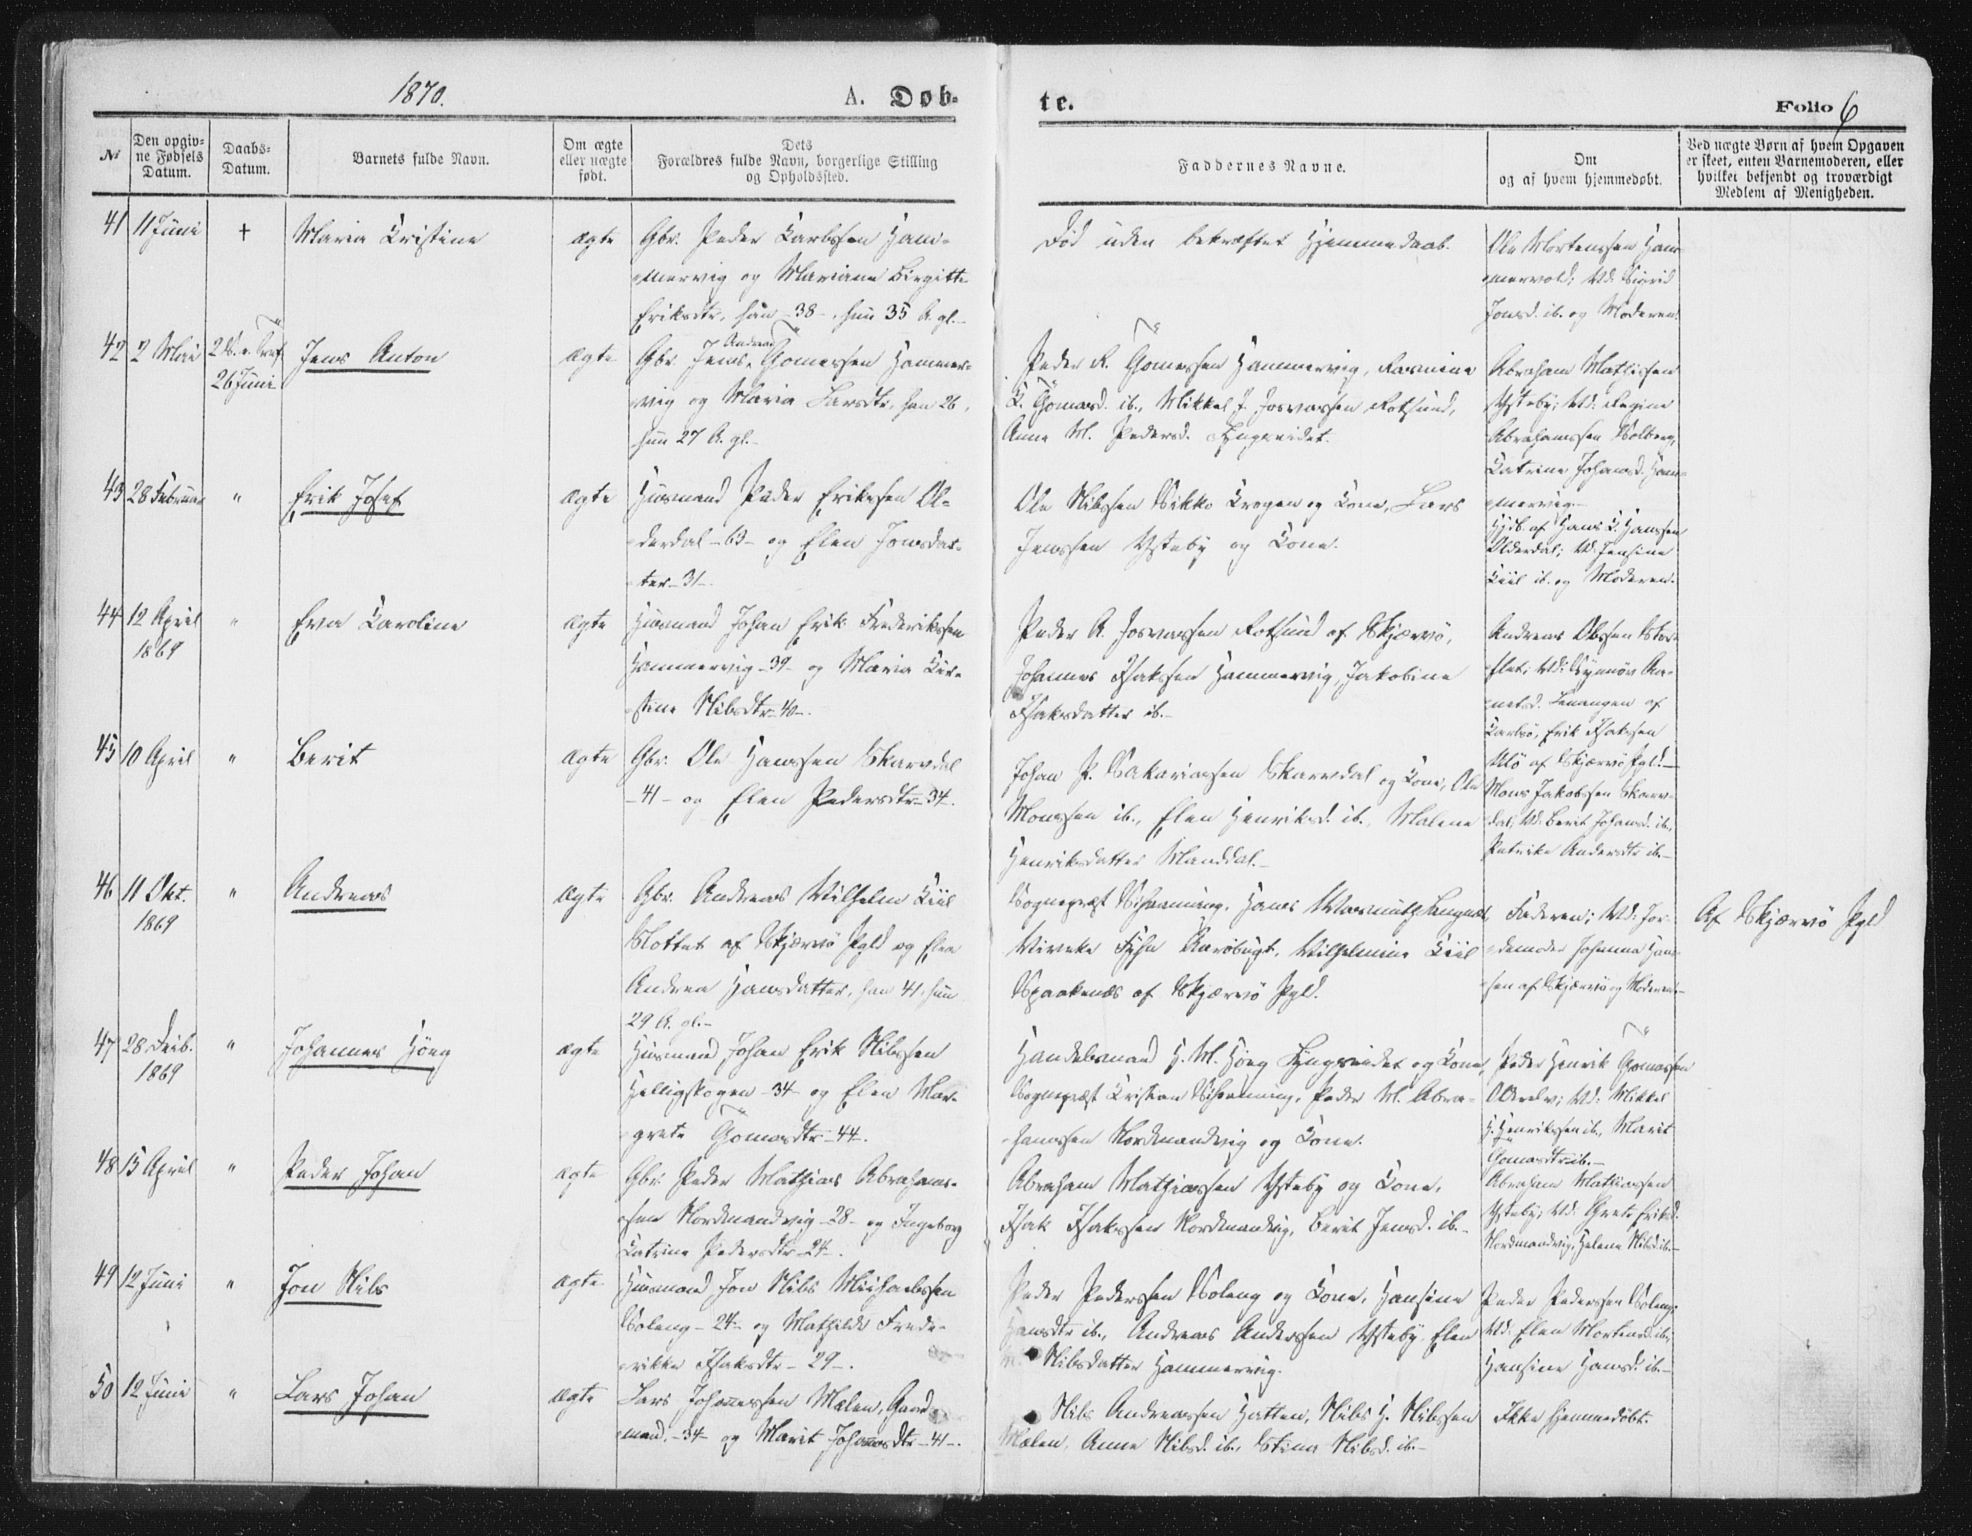 1870.
A. Døb-
te.
Folio 6
№
Den opgiv-
ne Fødsels
Datum.
Daabs-
Datum.
Barnets fulde Navn.
Om ægte
eller uægte
født.
Dets
Forældres fulde Navn, borgerlige Stilling
og Opholdssted.
Faddernes Navne.
Om
og af hvem hjemmedøbt.
Ved uægte Børn af hvem Opgaven
er skeet, enten Barnemoderen, eller
hvilket bekjendt og troværdigt
Medlem af Menigheden.
41 11 Juni + Maria Kristine ægte Gbr. Peder Karlssen Ham-
mervig og Mariane Birgitte
Eriksdtr. han -38-, hun 35 A. gl.
Død uden bekræftet Hjemmedaab.
Ole Mortenssen Ham-
mervold; Vd: Sigrid
Jonsd. ib. og Moderen
42 2 Mai 2 S. e. Tref.
26 Juni
Jens Anton ægte Gbr. Jens Andreas Gomassen Hammer-
vig og Maria Larsdtr. han 26,
hun 27 A. gl.
Peder R. Gomassen Hammervig, Rasmine
K. Gomasd. ib., Mikkel J. Josvassen Rotsund,
Anne M. Pedersd. Lyngseidet.
Abraham Mathissen
Ysteby; Vd: Regine
Abrahamssen Solberg,
Katrine Johansd. Ham-
mervig.
43 28 Februar " Erik Josef ægte Husmand Peder Erikssen Ol-
derdal -63- og Elen Jonsdat-
ter -31-
Ole Nilssen Sikko Krogen og Kone, Lars
Jenssen Ysteby og Kone.
Hjdb. af Hans K. Hanssen
Olderdal; Vd. Jensine
Kiil ib. og Moderen.
44 12 April
1869
" Eva Karoline ægte Husmand Johan Erik Frederikssen
Hammervig -39- og Maria Kir-
stine Nilsdtr -40-.
Peder A. Josvassen Rotsund af Skjærvø,
Johannes Isakssen Hammervig, Jakobine
Isaksdatter ib.
Andreas Olssen Stor-
slet; Vd: Synnøv
Lenangen af
Karlsø, Erik Isakssen
Ulø af Skjærvø Pgld.
45 10 April " Berit ægte Gbr. Ole Hanssen Skarvdal
-41- og Elen Pedersdtr -34-.
Johan P. Sakariassen Skarvdal og Kone, Ole
Monssen ib., Elen Henriksd. ib., Malene
Henriksdatter Manddal.
Mons Jakobssen Skarv-
dal; Vd. Berit Johansd. ib.,
Andersdtr ib.
46 11 Okt.
1869
" Andreas ægte Gbr. Andreas Wilhelm Kiil
Slottet af Skjærvø Pgld og Elen
Andrea Hansdatter, han 41, hun
29 A. gl.
Sognepræst Schrøning, Hans
Wivike Fyhn Havnbugt, Wilhelmine Kiil
Spaaknæs af Skjærvø Pgld.
Faderen; Vd: Jor-
demoder Johanna Han-
sen af Skjærvø og Moderen.
Af Skjærvø Pgld.
47 28 Feib.
1869
" Johannes Höeg ægte Husmand Johan Erik Nilssen
Helligskogen -34- og Elen Mar-
grete Gomasdtr -44-.
Handelsmand H. M. Höeg Lyngseidet og Kone,
Sognepræst Kristian Schrøning, Peder M. Abra-
hamssen Nordmandvig og Kone.
Peder Henrik Gomassen
Vd: Mikkel
H. Henrikssen ib., Marit
Gomasdtr ib.
48 15 April " Peder Johan ægte Gbr. Peder Mathias Abrahams-
sen Nordmandvig -28- og Ingeborg
Katrine Pedersdtr -24-.
Abraham Mathiassen Ysteby og Kone,
Isak Isakssen Nordmandvig, Berit Jensd. ib.
Abraham Mathiassen
Ysteby; Vd. Grete Eriksd.
Nordmandvig, Helene Nilsd. ib.
49 12 Juni " Jon Nils ægte Husmand Jon Nils Michaelssen
Soleng -24- og Mathilde Frede-
rikke Isaksdtr -29-.
Peder Pederssen Soleng og Kone, Hansine
Hansdtr ib., Andreas Anderssen Ysteby, Elen
Nilsdatter Hammervig.
Peder Pederssen Soleng;
Vd. Elen Mortensd. ib.,
Hansine Hansd. ib.
50 12 Juni " Lars Johan ægte Lars Johannessen Mælen, Gaard-
mand -34- og Marit Johannesdtr -41-.
Nils Andreassen Hatten, Nils H. Nilssen
Mælen, Anne Nilsd. ib., Stina Nilsd. ib.
Ikke hjemmedøbt.